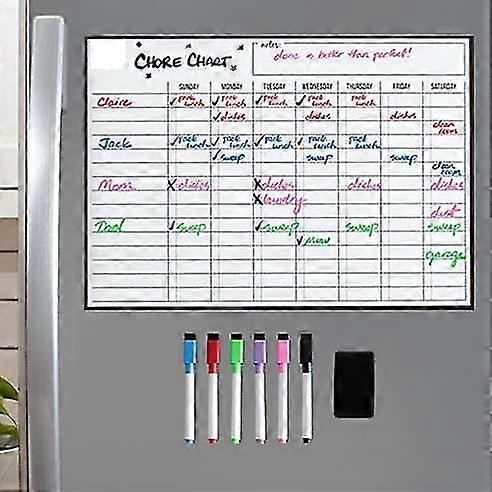 CHORE CHART
notes:
done is better than perfect!
SUNDAY MONDAY TUESDAY WEDNESDAY THURSDAY FRIDAY SATURDAY
Claire ✓ Pack lunch ✓ Pack lunch ✓ Pack lunch ✓ Pack lunch Pack lunch
✓ dishes dishes dishes
clean room
Jack ✓ Pack lunch ✓ Pack lunch ✓ Pack lunch ✓ Pack lunch Pack lunch
✓ sweep sweep sweep
clean room
Mom X dishes X dishes dishes dishes
X laundry
dust
Dad ✓ sweep ✓ sweep sweep sweep
✓ Mow
garage